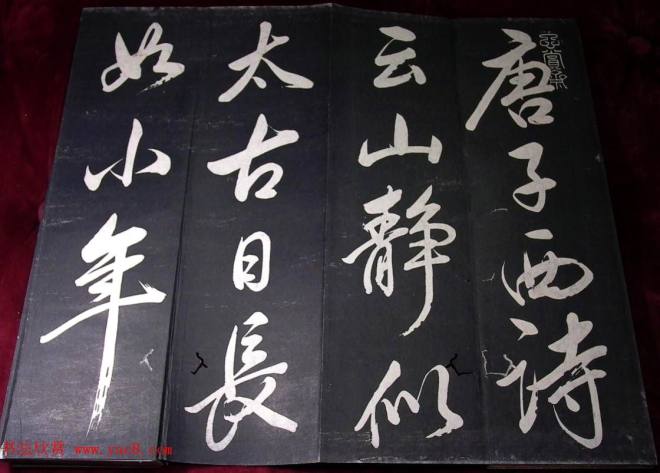 唐子西诗
云山静似
太古日長
如小年
书法欣赏 www.yac8.com